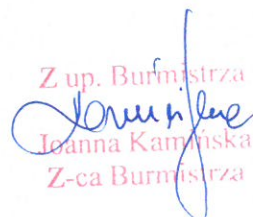 Z up. Burmistrza
Joanna Kamińska
Z-ca Burmistrza